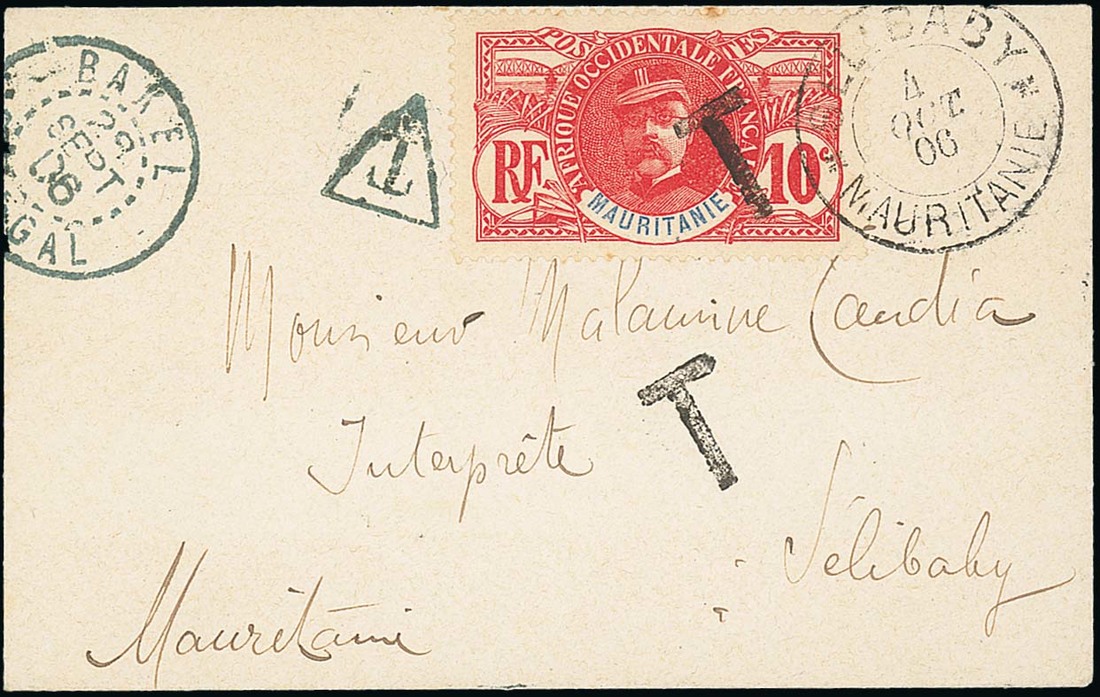 BAKEL
29
SEPT
06
GAL
T
POSTES
AFRIQUE OCCIDENTALE FRANÇAISE
RF
10c
MAURITANIE
T
BABY
4
OCT
06
MAURITANIE
Monsieur Malamine Candia
T
Interprête
Sélibaby
Mauritanie